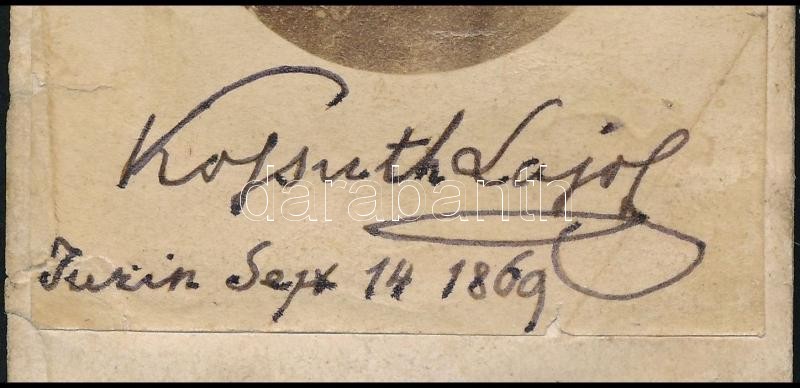 Kossuth Lajos
darabanth
Turin Sept 14 1869